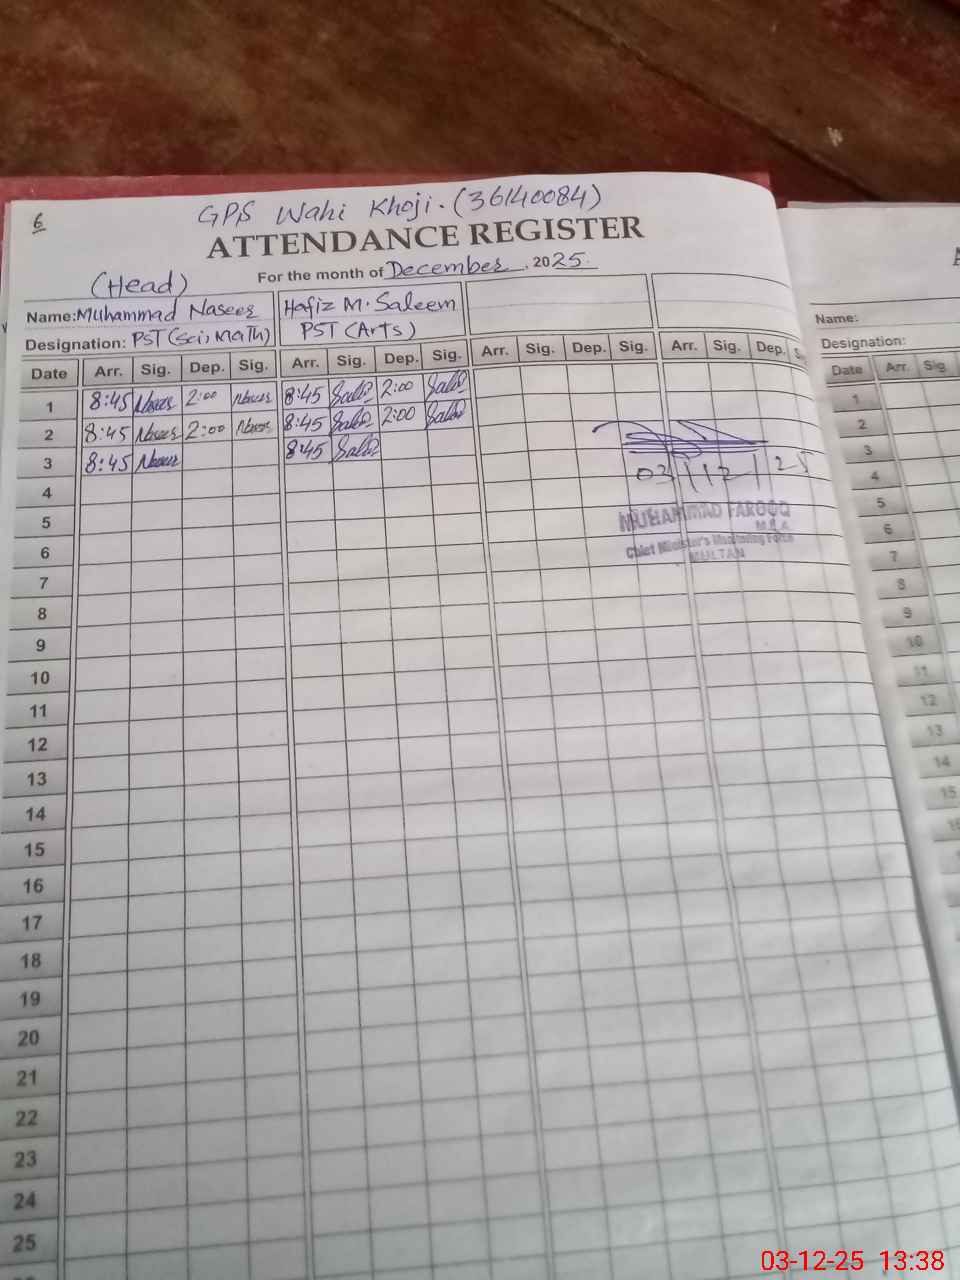 6
GPS Wahi Khoji. (36140084)
ATTENDANCE REGISTER
(Head)
For the month of December, 2025.
Name: Muhammad Naseer Hafiz M. Saleem
Designation: PST (Sci, Math) PST (Arts)
Date Arr. Sig. Dep. Sig. Arr. Sig. Dep. Sig. Arr. Sig. Dep. Sig. Arr. Sig. Dep.
1 8:45 Naseer 2:00 Naseer 8:45 2:00
2 8:45 Naseer 2:00 Naseer 8:45 2:00
3 8:45 Naseer 8:45
03/12/25
4
5
MUHAMMAD FAROOQ
M.E.A
6
Chief Minister's Monitoring Force
MULTAN
7
8
9
10
11
12
13
14
15
16
17
18
19
20
21
22
23
24
25
Name:
Designation:
Date Arr. Sig
1
2
3
4
5
6
7
8
9
10
11
12
13
14
15
03-12-25 13:38